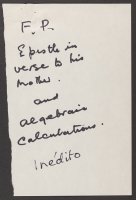 F. P.
Epistle in
verse to his
mother.
and
algebraic
calculations.
Inédito